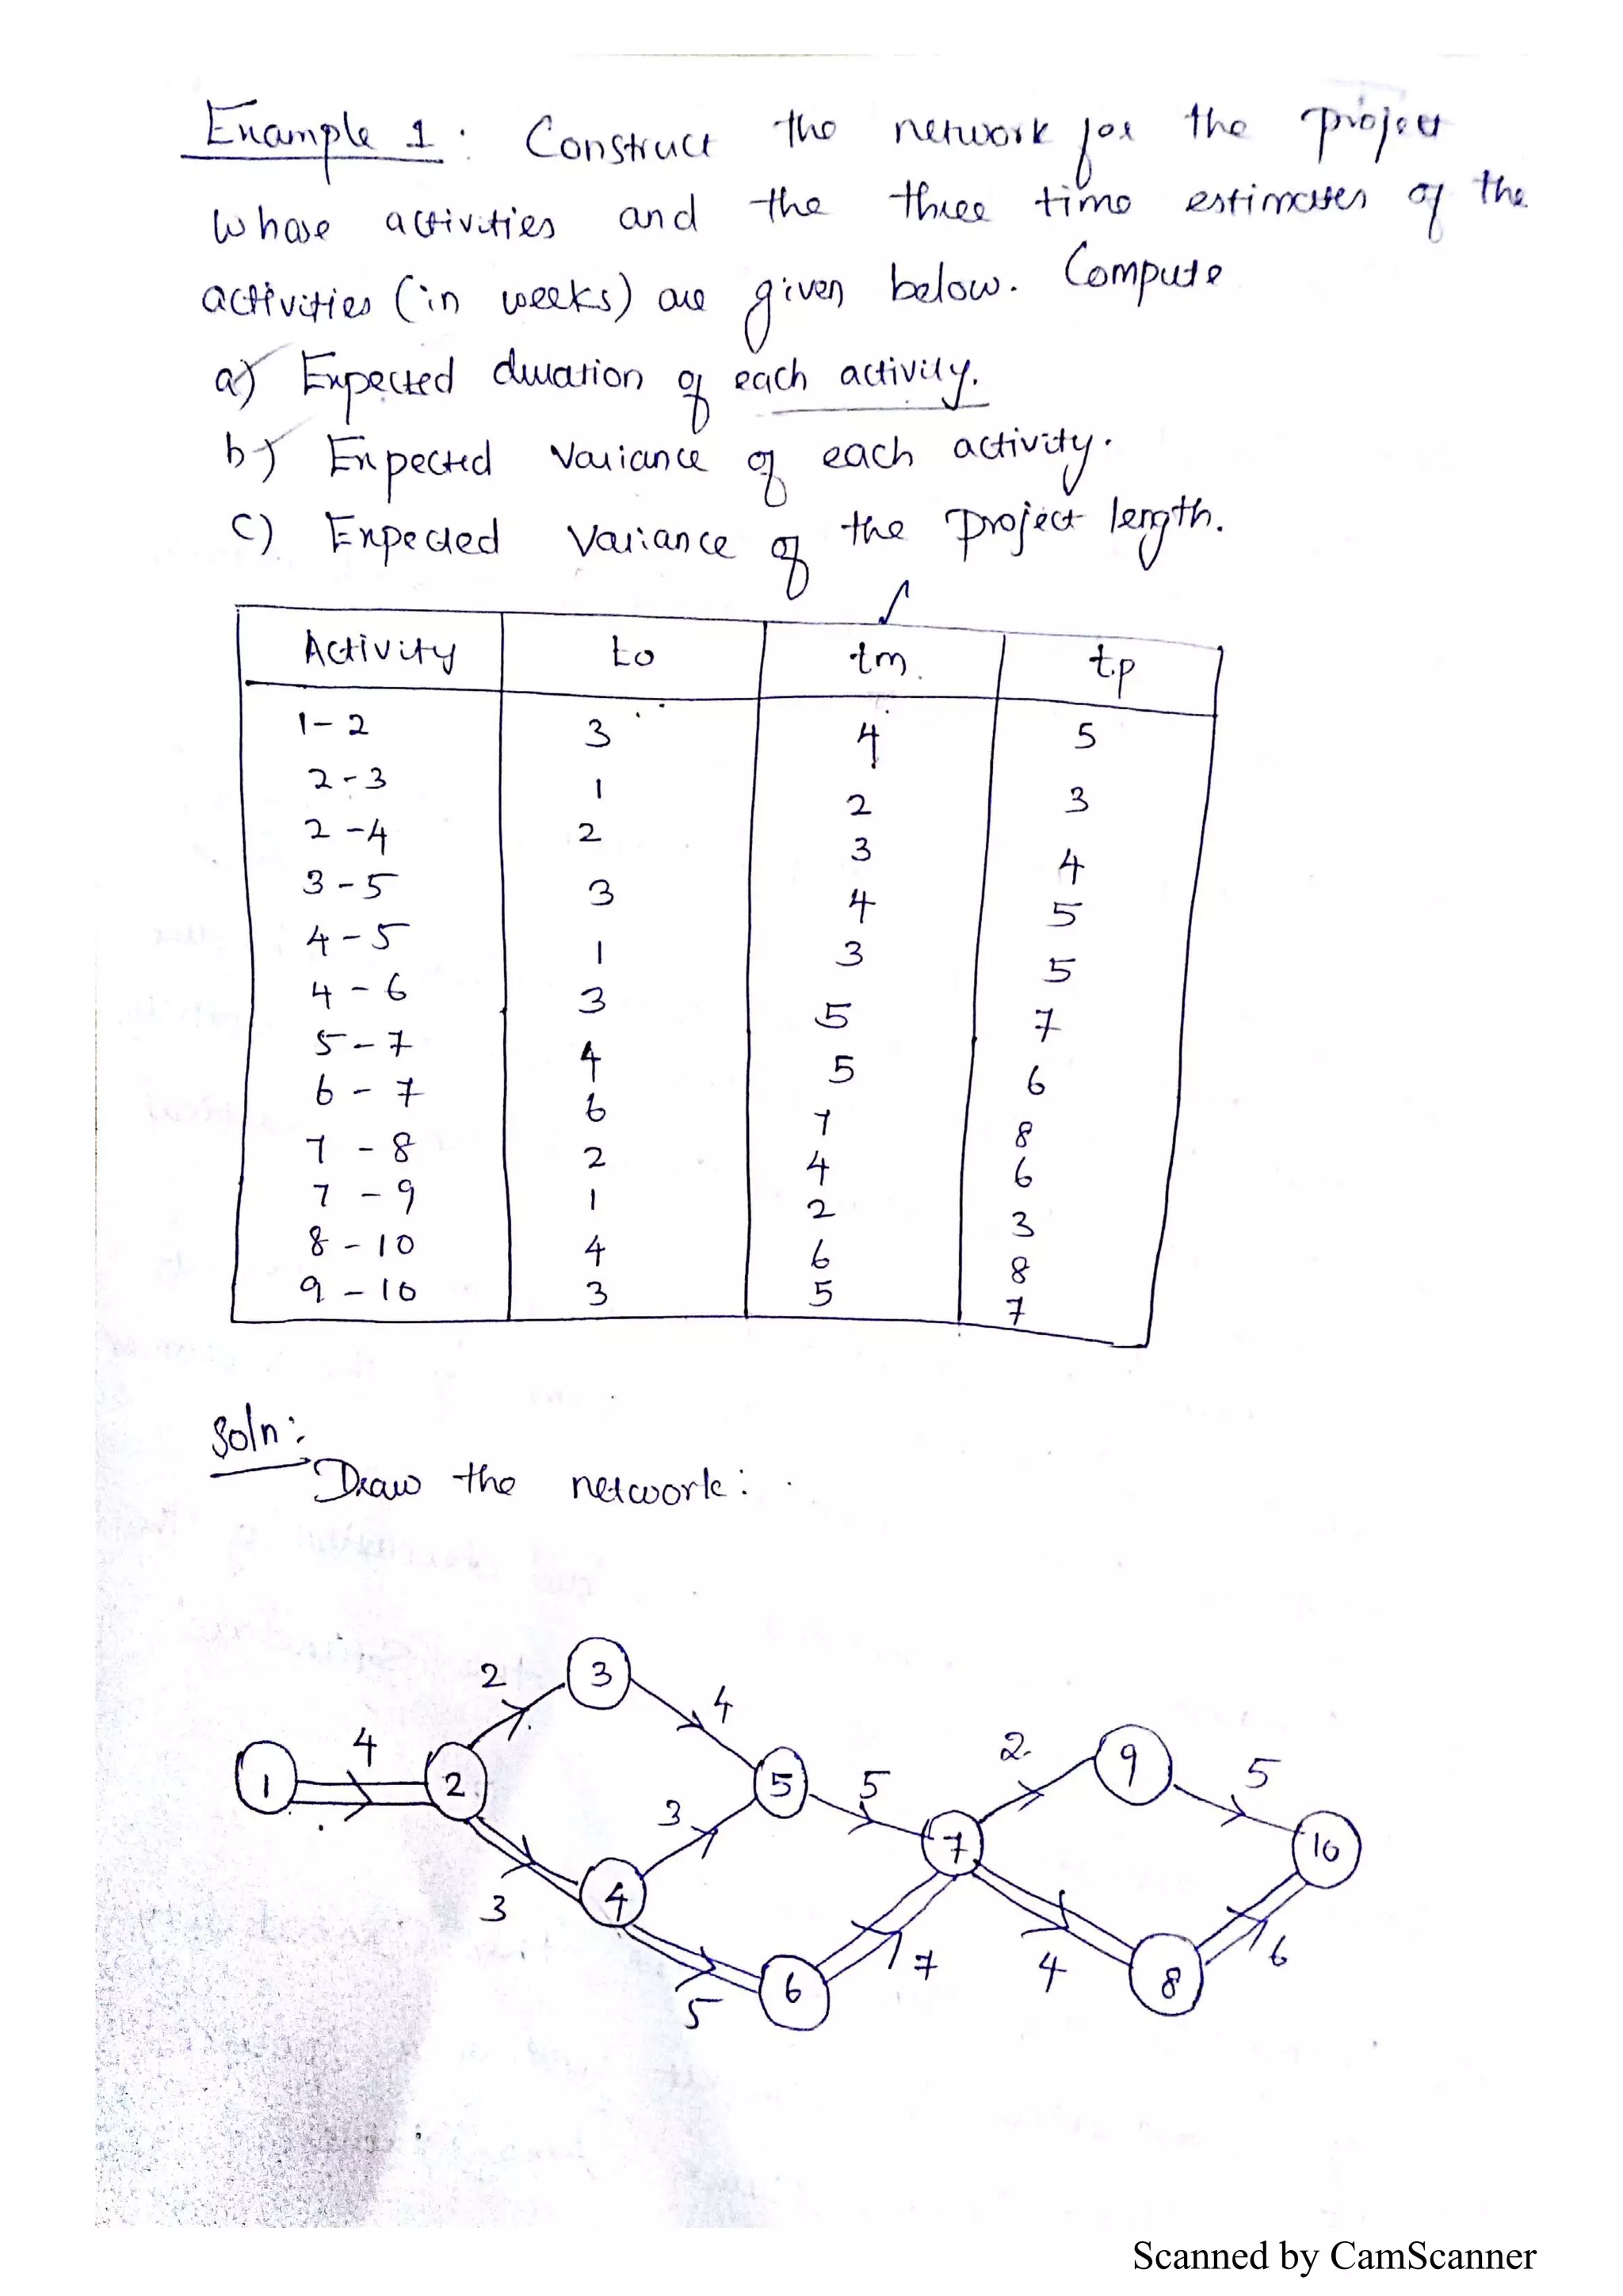 Example 1 : Construct the network for the project
whose activities and the three time estimates of the
activities (in weeks) are given below. Compute
a) Expected duration of each activity.
b) Expected Variance of each activity.
c) Expected Variance of the project length.
Activity to tm. tp
1 - 2 3 4 5
2 - 3 1 2 3
2 - 4 2 3 4
3 - 5 3 4 5
4 - 5 1 3 5
4 - 6 3 5 7
5 - 7 4 5 6
6 - 7 6 7 8
7 - 8 2 4 6
7 - 9 1 2 3
8 - 10 4 6 8
9 - 10 3 5 7
Soln:
Draw the network:
2 3 4
1 4 2 3 5 5 2 9 5
3 4 7 10
5 6 7 4 8 6
Scanned by CamScanner